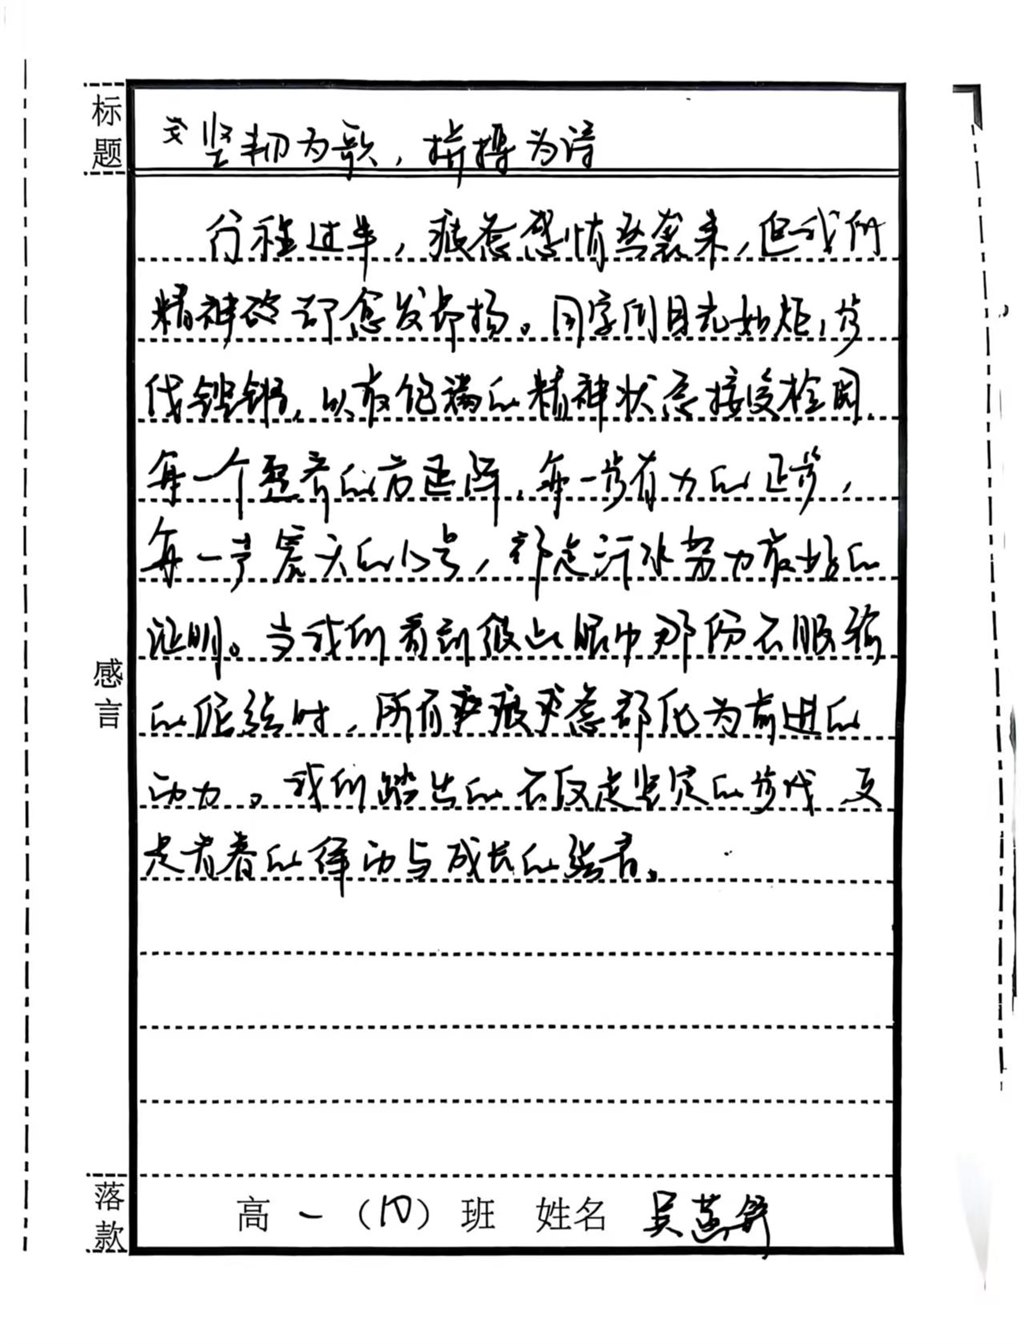 标题
坚韧为歌，拼搏为诗
行程过半，疲惫感悄然袭来，但我们
精神却愈发昂扬。同学们目光如炬，步
伐铿锵，以最饱满的精神状态接受检阅。
每一个整齐的方连阵，每一步有力的正步，
每一声震天的口号，都是汗水努力最好的
证明。当我们看到彼此眼中那份不服输
的倔强时，所有疲惫都化为前进的
动力。我们踏出的不仅是坚定的步伐 更
是青春的律动与成长的强音。
感言
落款
高一（10）班 姓名 吴燕舒